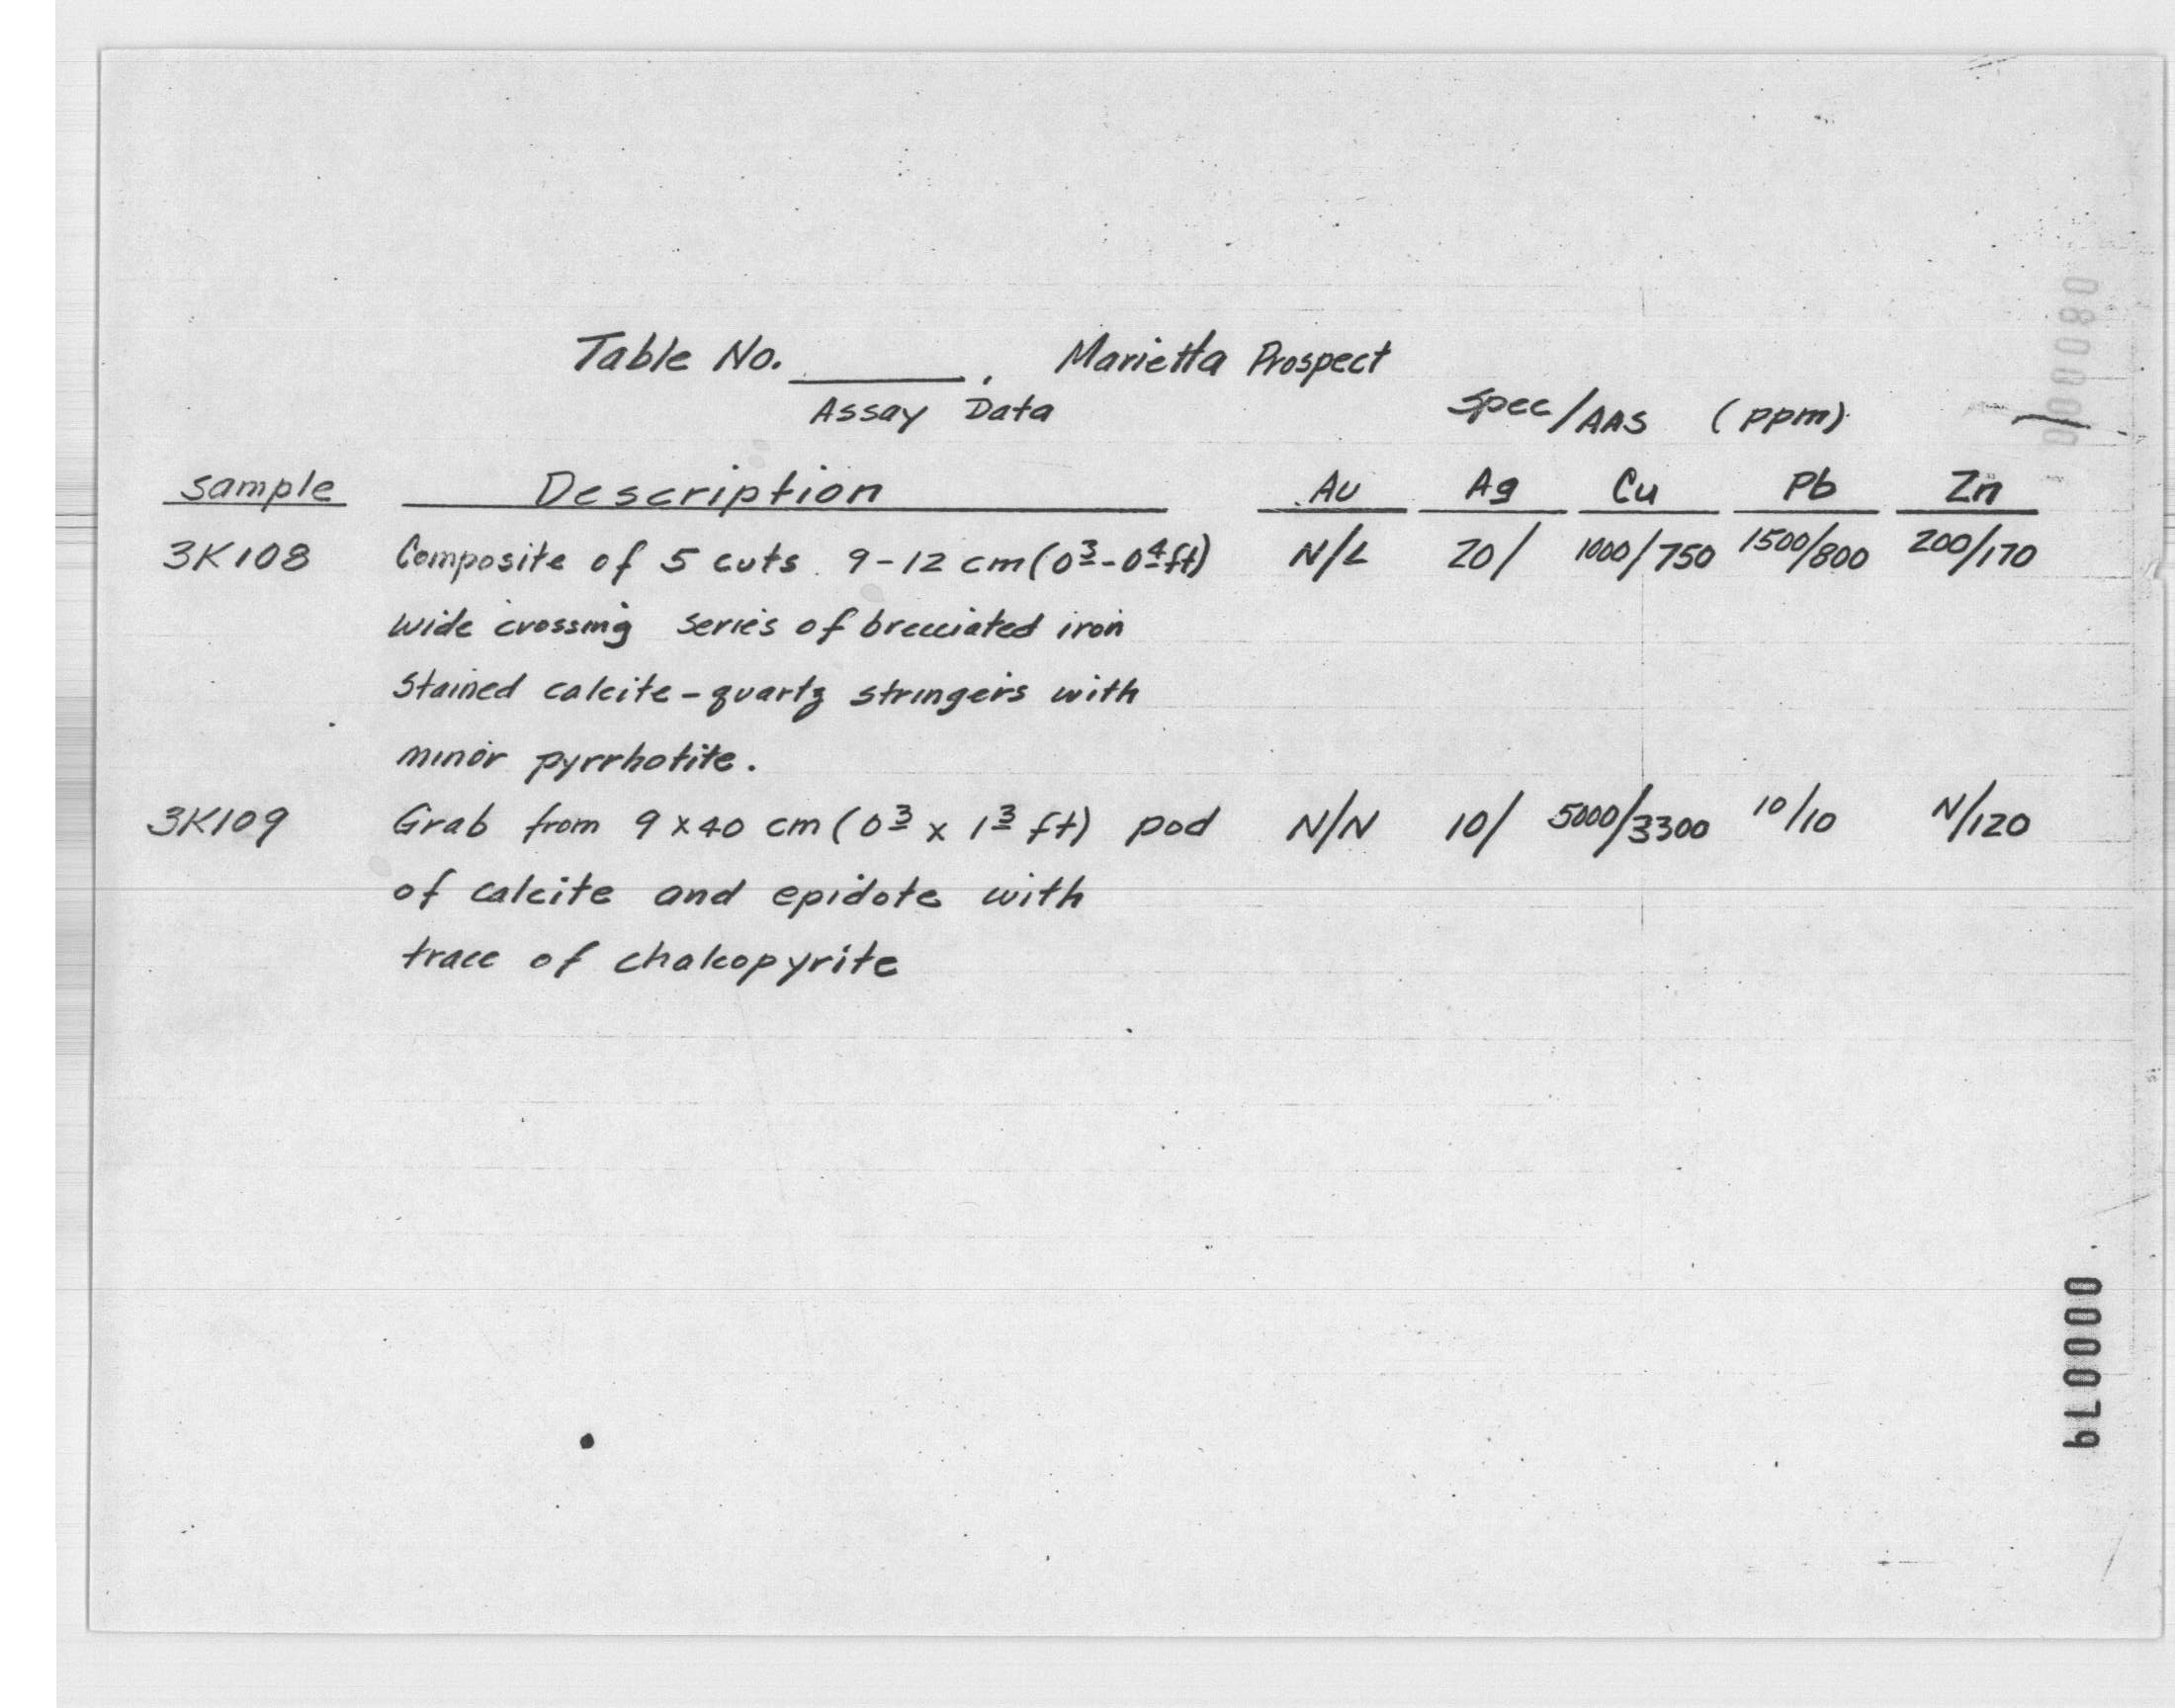 Table No. ______, Marietta Prospect
Assay Data
Spec/AAS (ppm)
Sample Description Au Ag Cu Pb Zn
3K108 Composite of 5 cuts 9-12 cm (0³-0⁴ft) N/L 20/ 1000/750 1500/800 200/170
wide crossing series of brecciated iron
stained calcite-quartz stringers with
minor pyrrhotite.
3K109 Grab from 9 x 40 cm (0³ x 1³ ft) pod N/N 10/ 5000/3300 10/10 N/120
of calcite and epidote with
trace of chalcopyrite
000079
000080